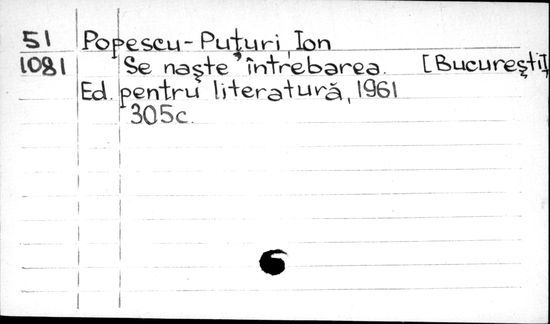 51 Popescu-Puţuri, Ion
1081 Se naşte întrebarea. [Bucureşti]
Ed. pentru literatură, 1961
305c.